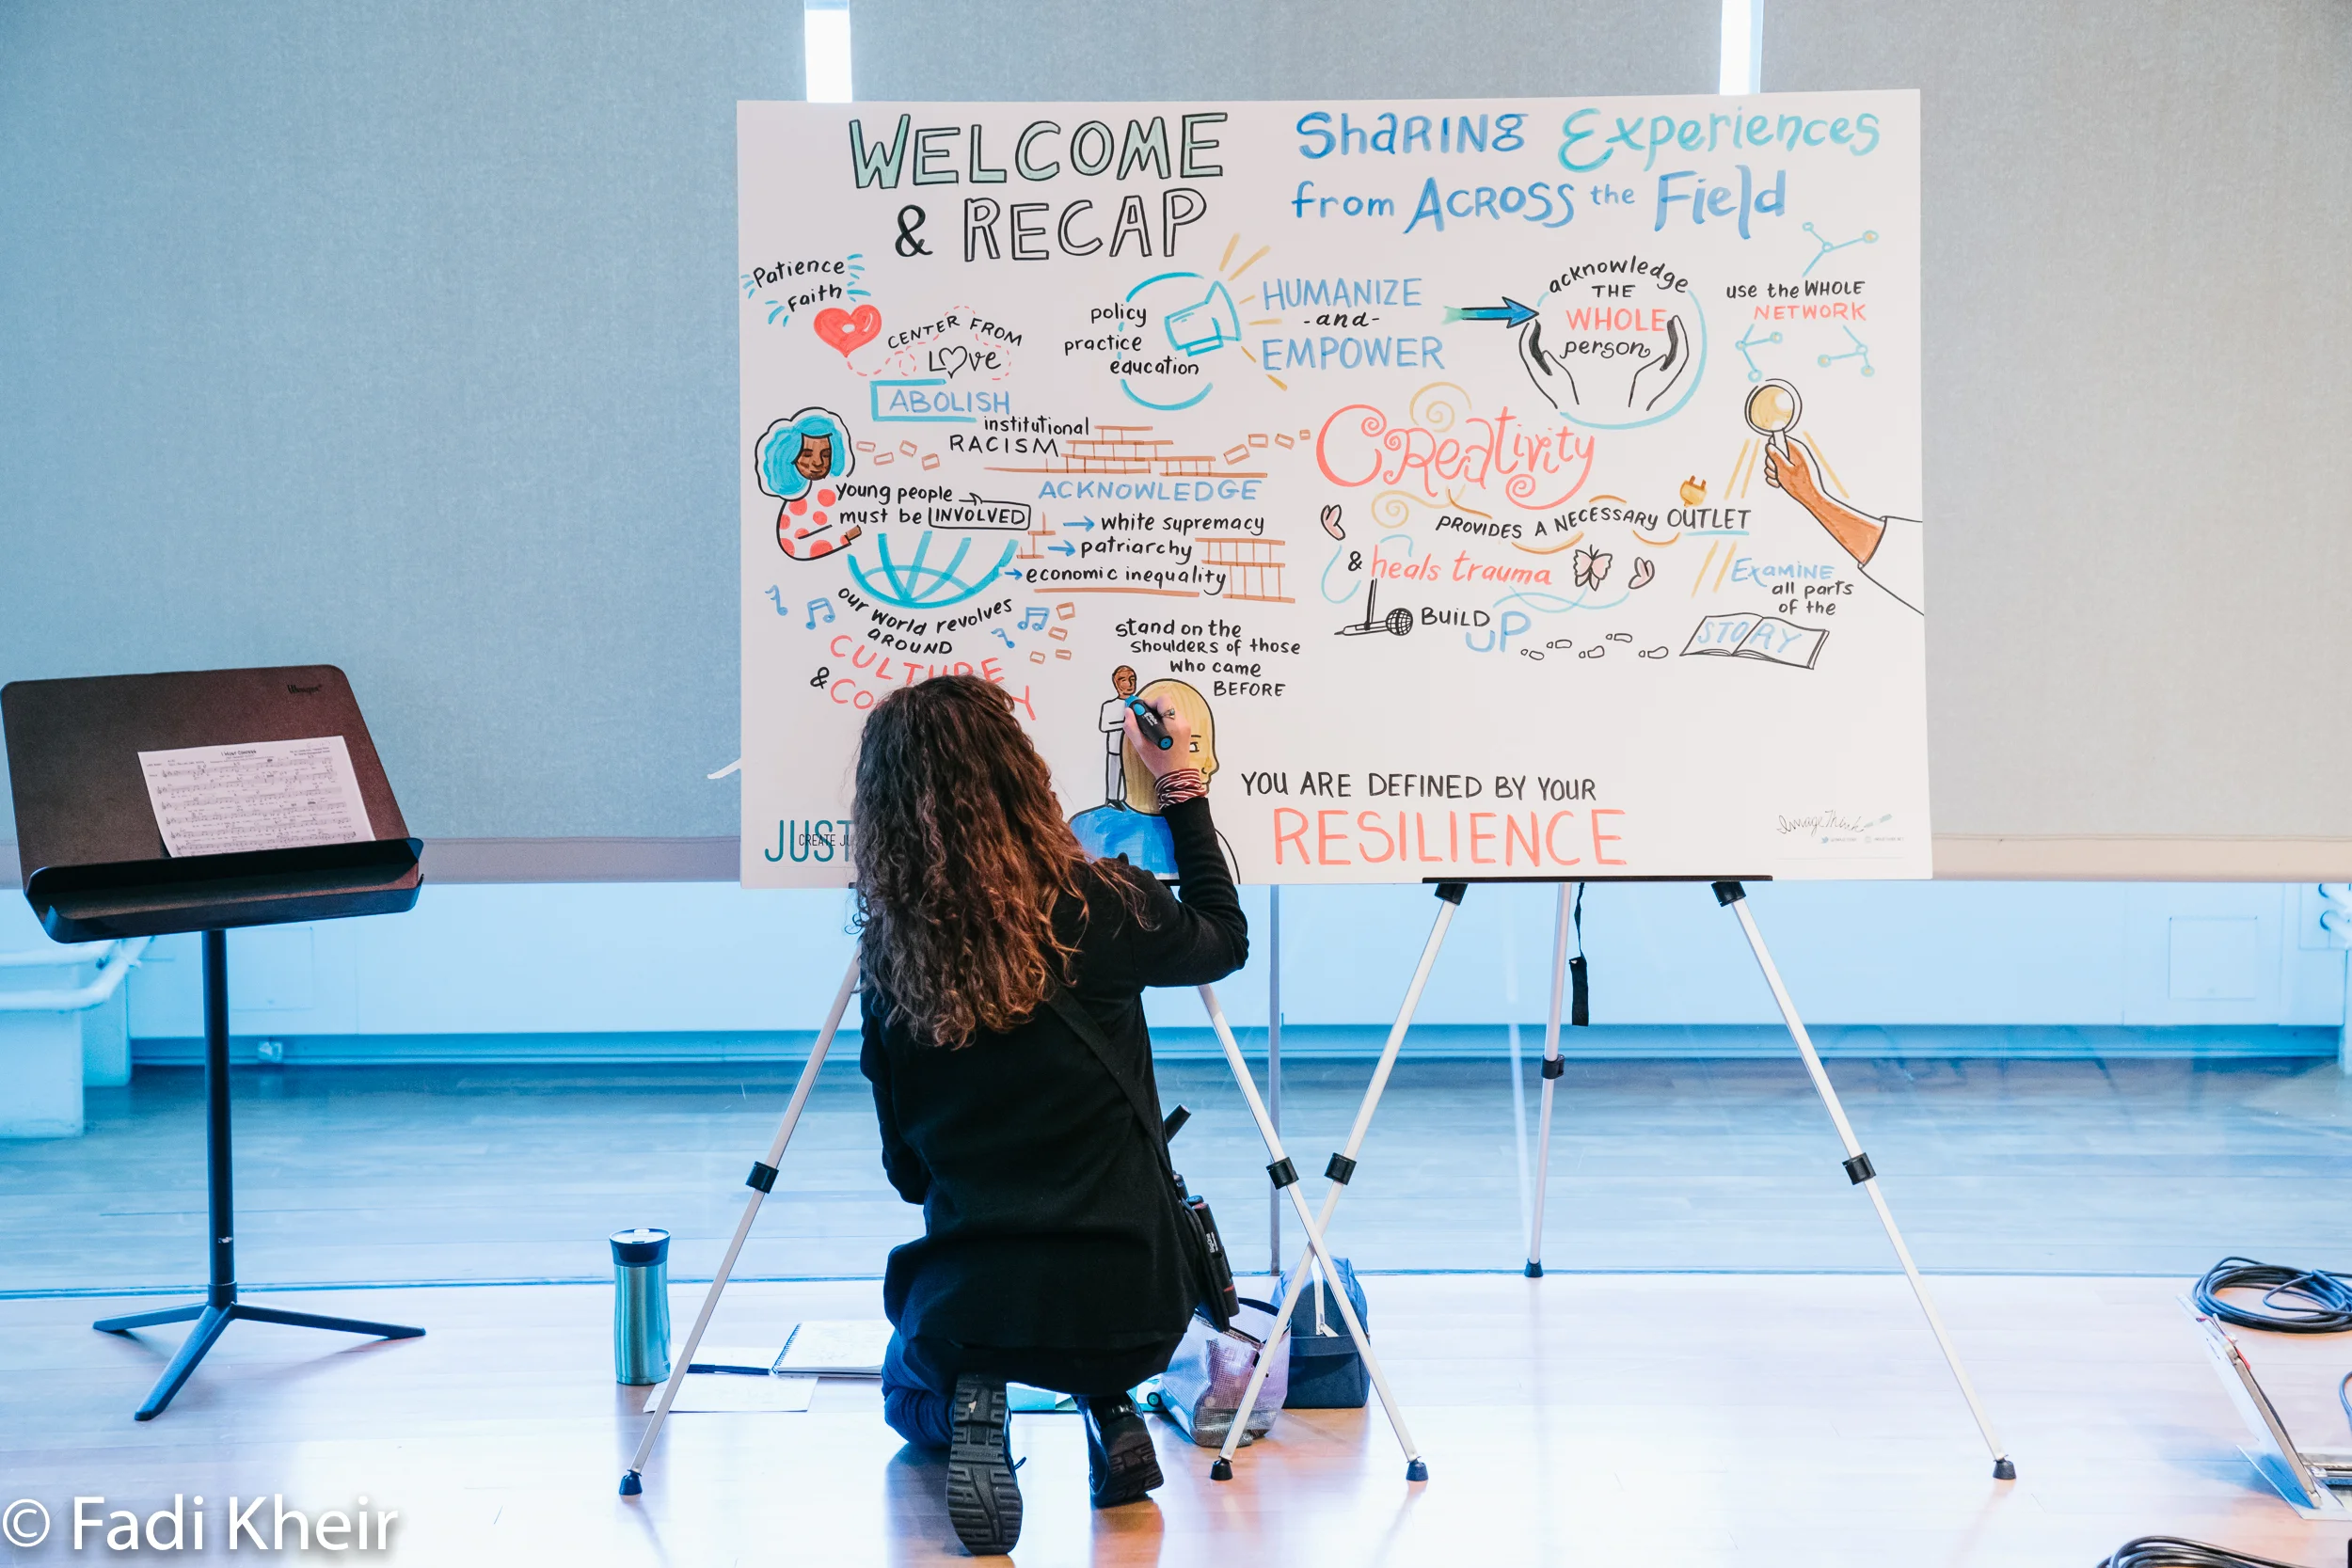 WELCOME
& RECAP
Sharing Experiences
from Across the Field
Patience
Faith
CENTER FROM
LOVE
ABOLISH
institutional
RACISM
policy
practice
education
HUMANIZE
-and-
EMPOWER
acknowledge
THE
WHOLE
person
use the WHOLE
NETWORK
young people
must be INVOLVED
ACKNOWLEDGE
white supremacy
patriarchy
economic inequality
Creativity
PROVIDES A NECESSARY OUTLET
& heals trauma
Examine
all parts
of the
STORY
BUILD
UP
our world revolves
AROUND
CULTURE
&
stand on the
shoulders of those
who came
BEFORE
YOU ARE DEFINED BY YOUR
RESILIENCE
JUST
CREATE
ImageThink
© Fadi Kheir